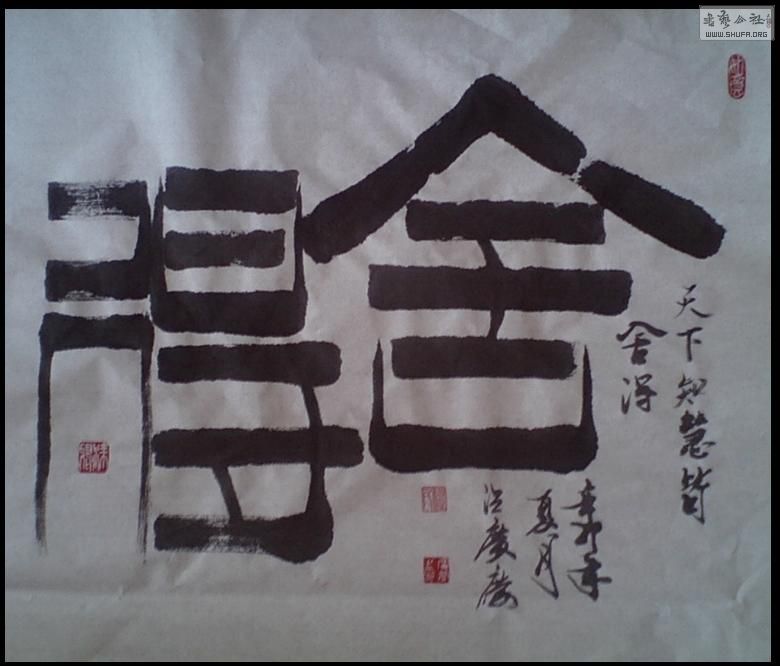 書藝公社
WWW.SHUFA.ORG
舍得
天下知慧皆
舍得
辛卯年
夏月
廣慶